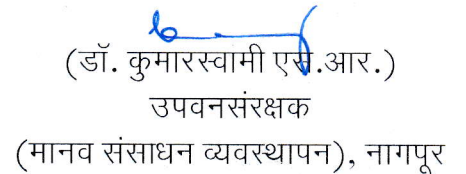 (डॉ. कुमारस्वामी एस.आर.)
उपवनसंरक्षक
(मानव संसाधन व्यवस्थापन), नागपूर